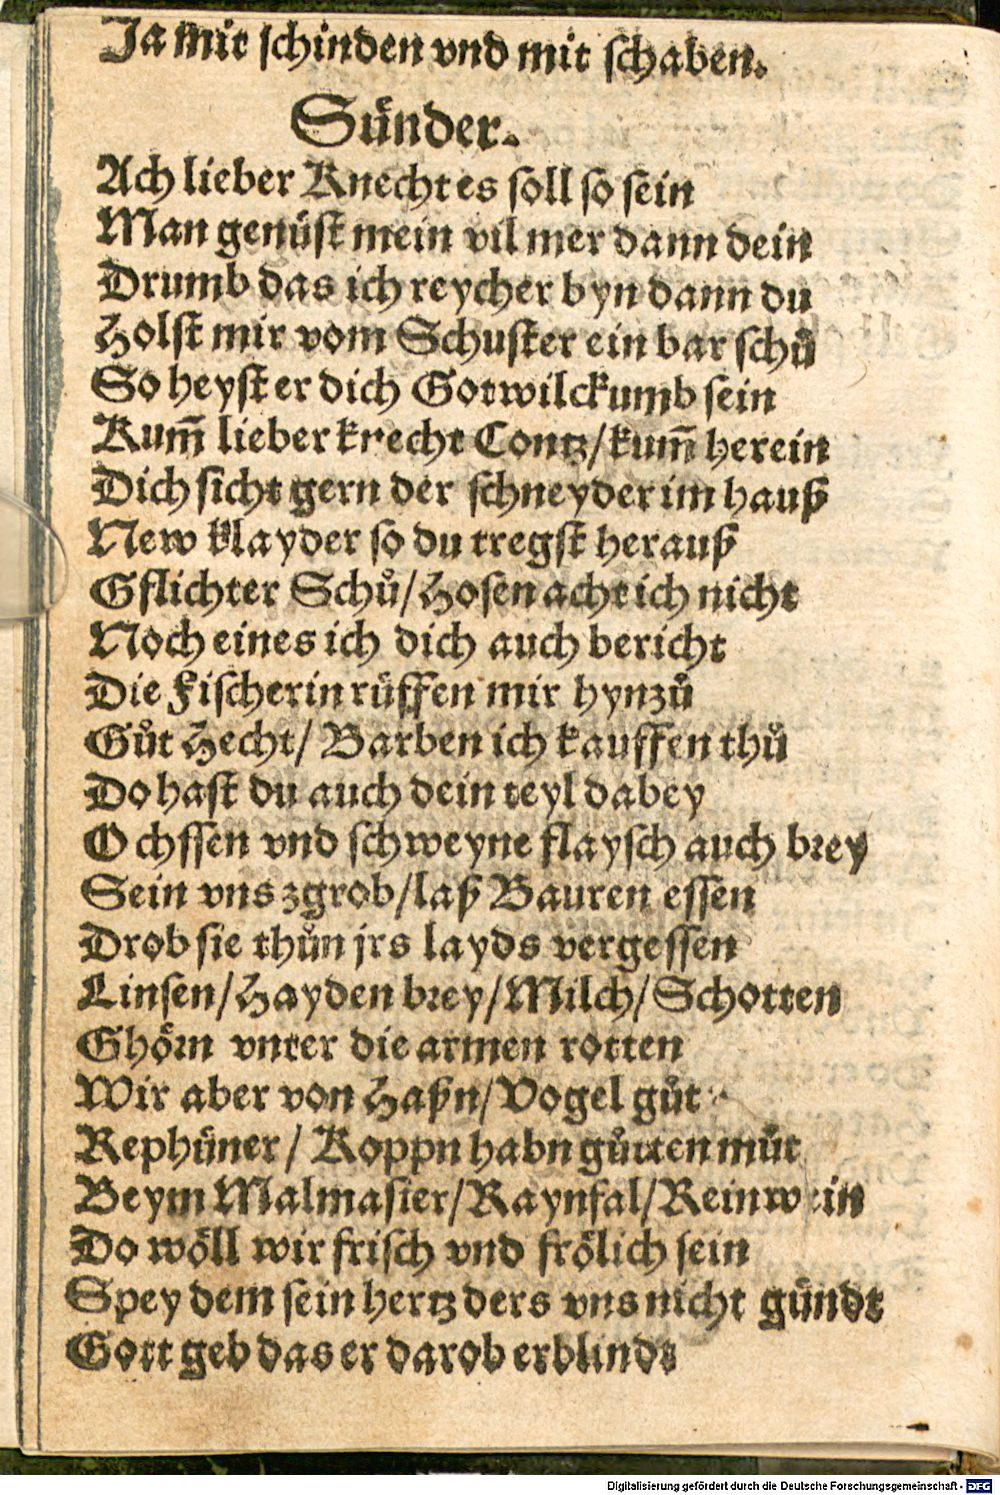 Ja mit schinden vnd mit schaben.
Sünder.
Ach lieber Knecht es soll so sein
Man genüst mein vil mer dann dein
Drumb das ich reycher byn dann du
Holst mir vom Schuster ein bar schů
So heyst er dich Gotwilckumb sein
Kum̃ lieber knecht Contz/kum̃ herein
Dich sicht gern der schneyder im hauß
New klayder so du tregst herauß
Gflichter Schů/Hosen acht ich nicht
Noch eines ich dich auch bericht
Die Fischerin rüffen mir hynzů
Gůt Hecht/ Barben ich kauffen thů
Do hast du auch dein teyl dabey
Ochssen vnd schweyne flaysch auch brey
Sein vns zgrob/laß Bauren essen
Drob sie thůn jrs layds vergessen
Linsen/Hayden brey/Milch/Schotten
Ghörn vnter die armen rotten
Wir aber von Haßn/Vogel gůt
Rephüner/ Koppn habn gůtten můt
Beym Malmasier/Raynfal/Reinwein
Do wöll wir frisch vnd frölich sein
Spey dem sein hertz ders vns nicht gündt
Gott geb das er darob erblindt
Digitalisierung gefördert durch die Deutsche Forschungsgemeinschaft - DFG